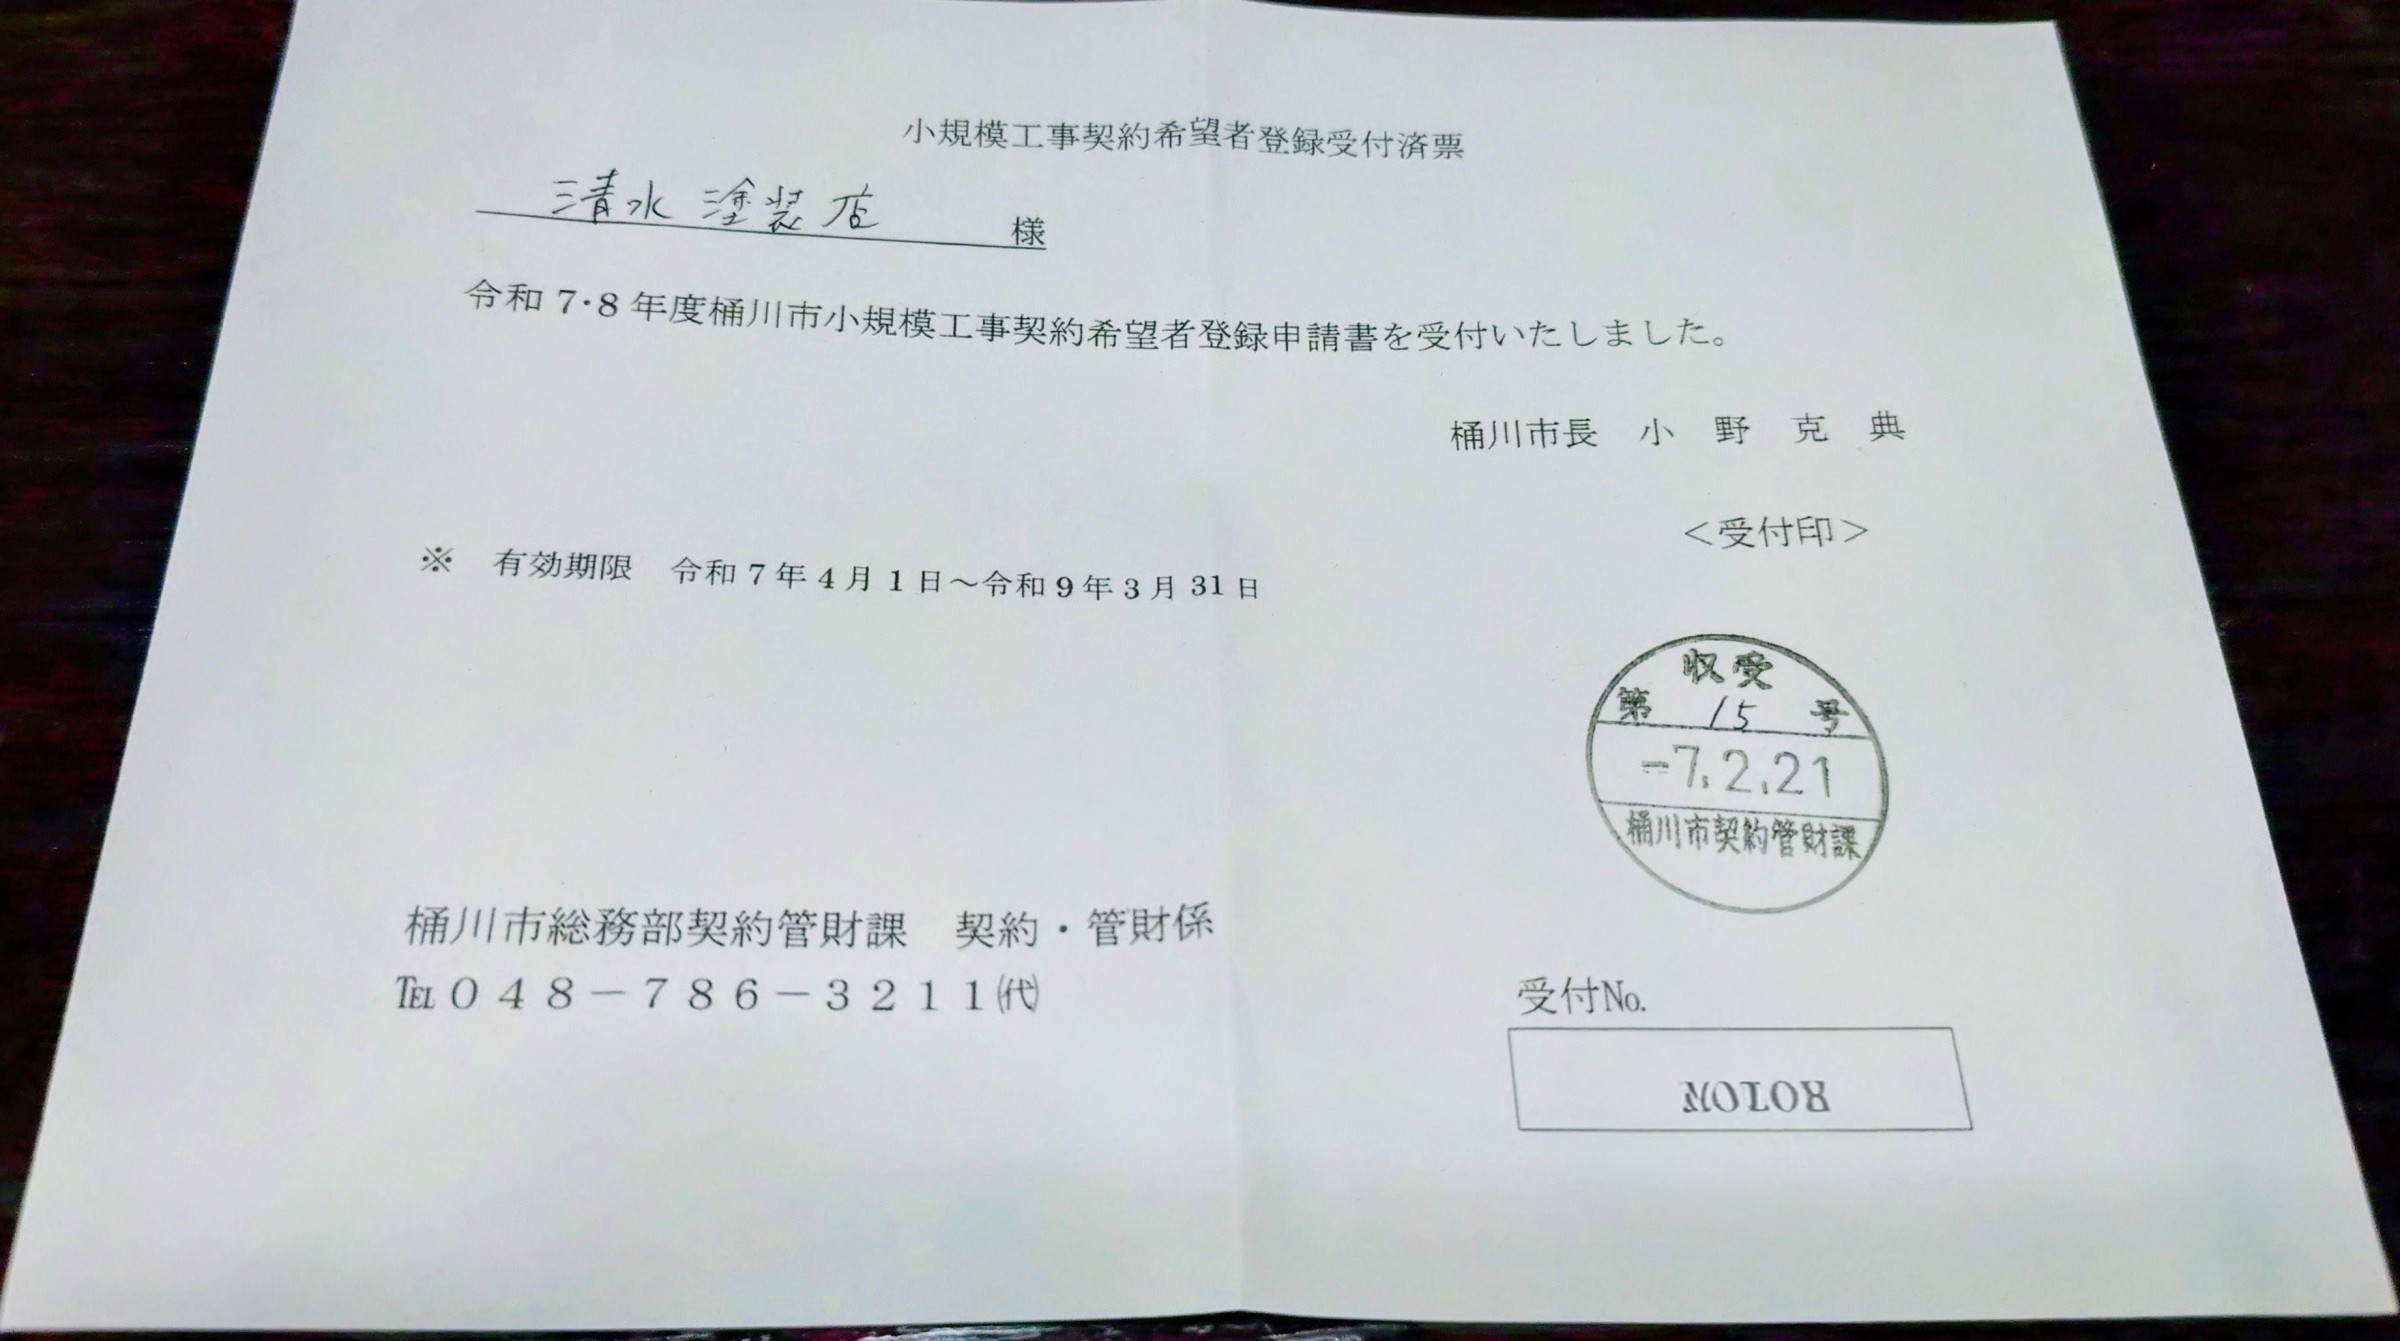 小規模工事契約希望者登録受付済票
清水塗装店 様
令和7・8年度桶川市小規模工事契約希望者登録申請書を受付いたしました。
桶川市長 小野克典
<受付印>
※ 有効期限 令和7年4月1日～令和9年3月31日
収受
第 15 号
-7.2.21
桶川市契約管財課
桶川市総務部契約管財課 契約・管財係
℡048-786-3211㈹
受付№